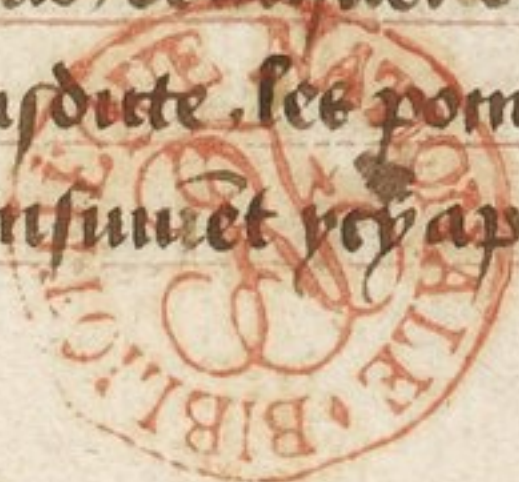 sdicte, les poin
nsuiuẽt ycy ap
BIBLIOTHÈQUE NATIONALE